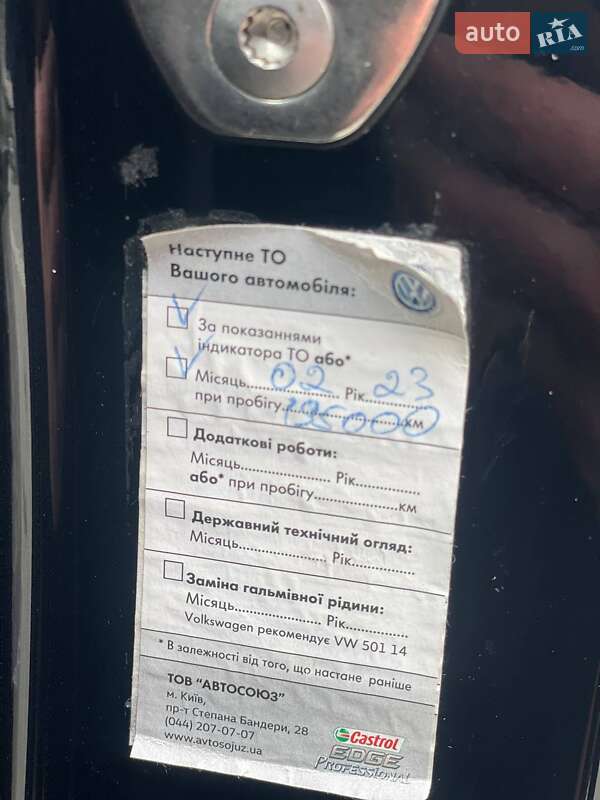 auto RIA .com
Наступне ТО
Вашого автомобіля:
За показаннями
індикатора ТО або*
Місяць 02 Рік 23
при пробігу 195000 км
Додаткові роботи:
Місяць Рік
або* при пробігу км
Державний технічний огляд:
Місяць Рік
Заміна гальмівної рідини:
Місяць Рік
Volkswagen рекомендує VW 501 14
* В залежності від того, що настане раніше
ТОВ “АВТОСОЮЗ”
м. Київ,
пр-т Степана Бандери, 28
(044) 207-07-07
www.avtosojuz.ua
Castrol
EDGE
PROFESSIONAL